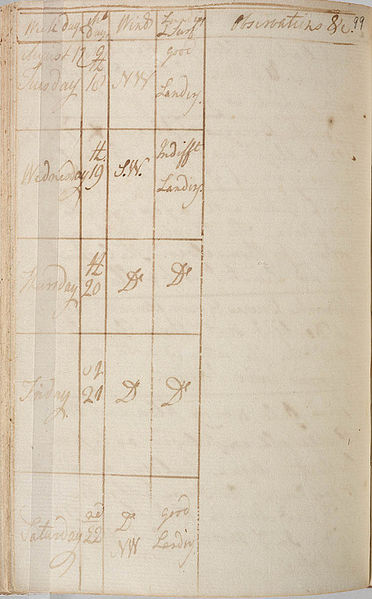 Week days Mo. days Wind Surf Observations &c. 39
August 17
Tuesday 18 NW good
Landing.
Wednesday 19 S.W. Indifft
Landing.
Thursday 20 Do Do
Friday 21 Do Do
Saturday 22 Do NW good
Landing